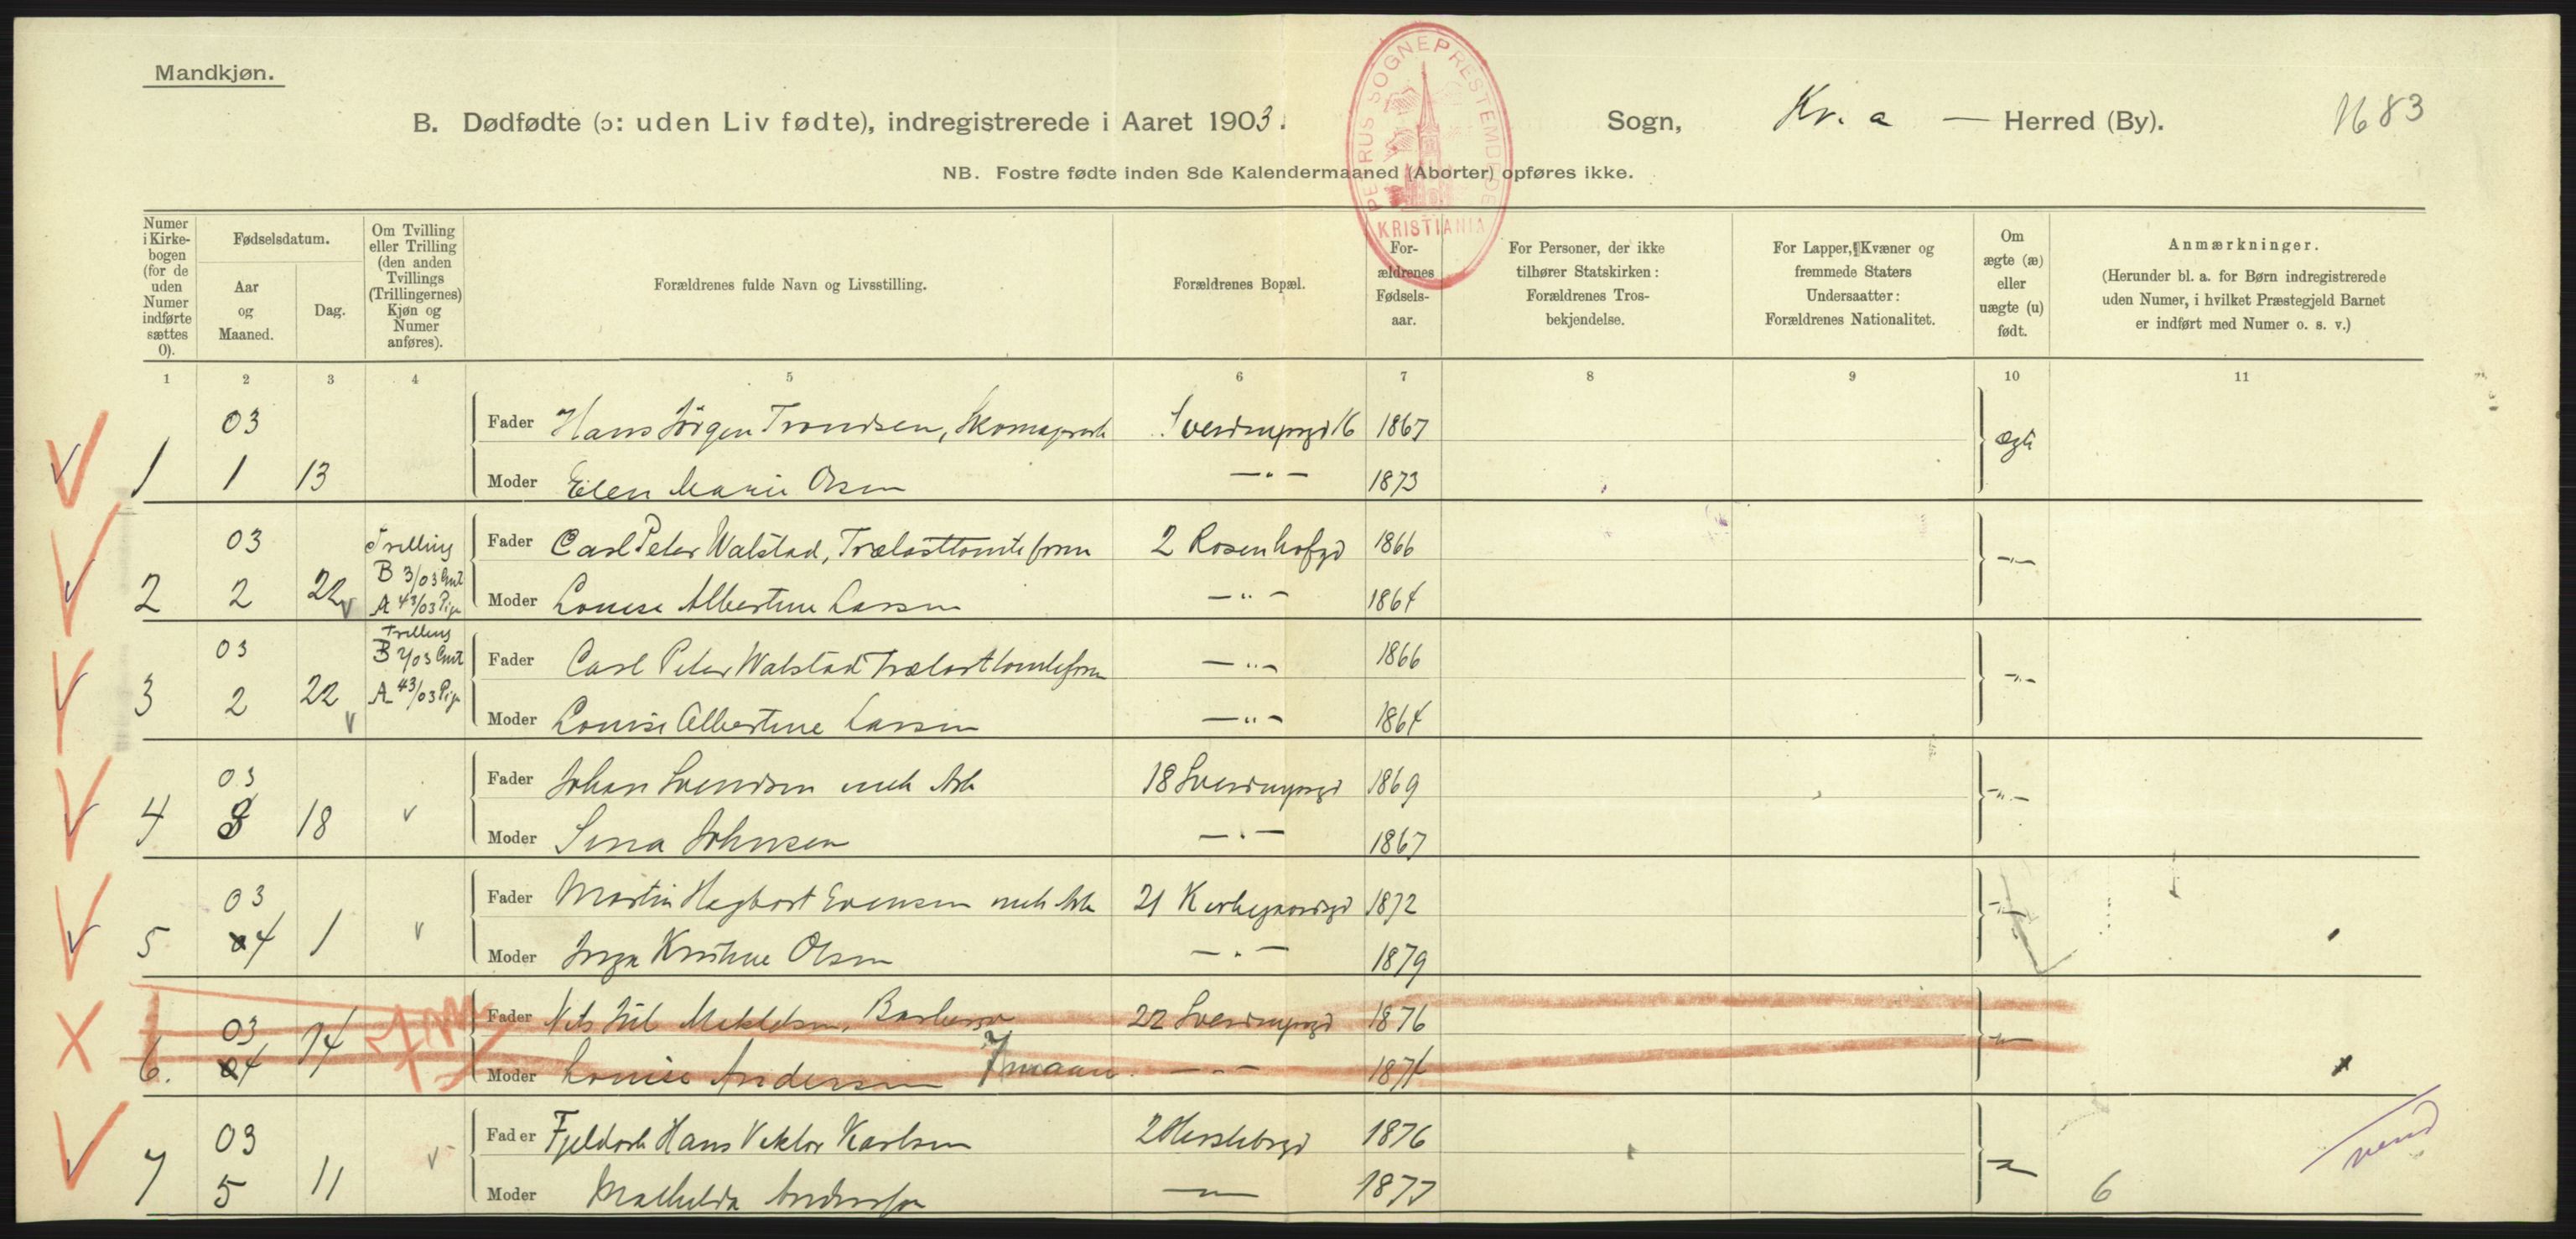 Mandkjøn.
B. Dødfødte (ɔ: uden Liv fødte), indregistrerede i Aaret 1903. Sogn, Kr.a — Herred (By). 1683
NB. Fostre fødte inden 8de Kalendermaaned (Aborter) opføres ikke.
PETRUS SOGNEPRESTEMBEDE
KRISTIANIA
Numer i Kirkebogen (for de uden Numer indførte sættes 0).
Fødselsdatum.
Aar og Maaned.
Dag.
Om Tvilling eller Trilling (den anden Tvillings (Trillingernes) Kjøn og Numer anføres).
Forældrenes fulde Navn og Livsstilling.
Forældrenes Bopæl.
Forældrenes Fødselsaar.
For Personer, der ikke tilhører Statskirken: Forældrenes Trosbekjendelse.
For Lapper, Kvæner og fremmede Staters Undersaatter: Forældrenes Nationalitet.
Om ægte (æ) eller uægte (u) født.
Anmærkninger.
(Herunder bl. a. for Børn indregistrerede uden Numer, i hvilket Præstegjeld Barnet er indført med Numer o. s. v.)
1 2 3 4 5 6 7 8 9 10 11
03 Fader Hans Jörgen Trondsen, Skomagersv Sverdrupsgd 16 1867 ægte
1 1 13 Moder Ellen Marie Olsen —"— 1873
03 Trilling Fader Carl Peter Walstad, Trælasttomteform 2 Rosenhofgd 1866 —"—
B 3/03 Gut
2 2 22 A 43/03 Pige Moder Louise Albertine Larsen —"— 1864
Trilling
03 B 2/03 Gut Fader Carl Peter Walstad Trælasttomteform —"— 1866 —"—
3 2 22 A 43/03 Pige Moder Louise Albertine Larsen —"— 1864
03 Fader Johan Svendsen mek Arb 18 Sverdrupsgd 1869 —"—
4 3 18 Moder Sina Johnsen —"— 1867
03 Fader Martin Hagbart Evensen mek Arb 21 Kirkegaardsgd 1872 —"—
5 4 1 Moder Inga Kristine Olsen —"— 1879
03 Fader Nils Jul Mikkelsen, Barberer 22 Sverdrupsgd 1876 —"—
6. 4 14 Moder Louise Andersen 7 maan. —"— 1874
03 Fader Fjeldarb Hans Viktor Karlsen 2 Herslebsgd 1876 —"—
7 5 11 Moder Mathilda Andersson —"— 1877 6
vend